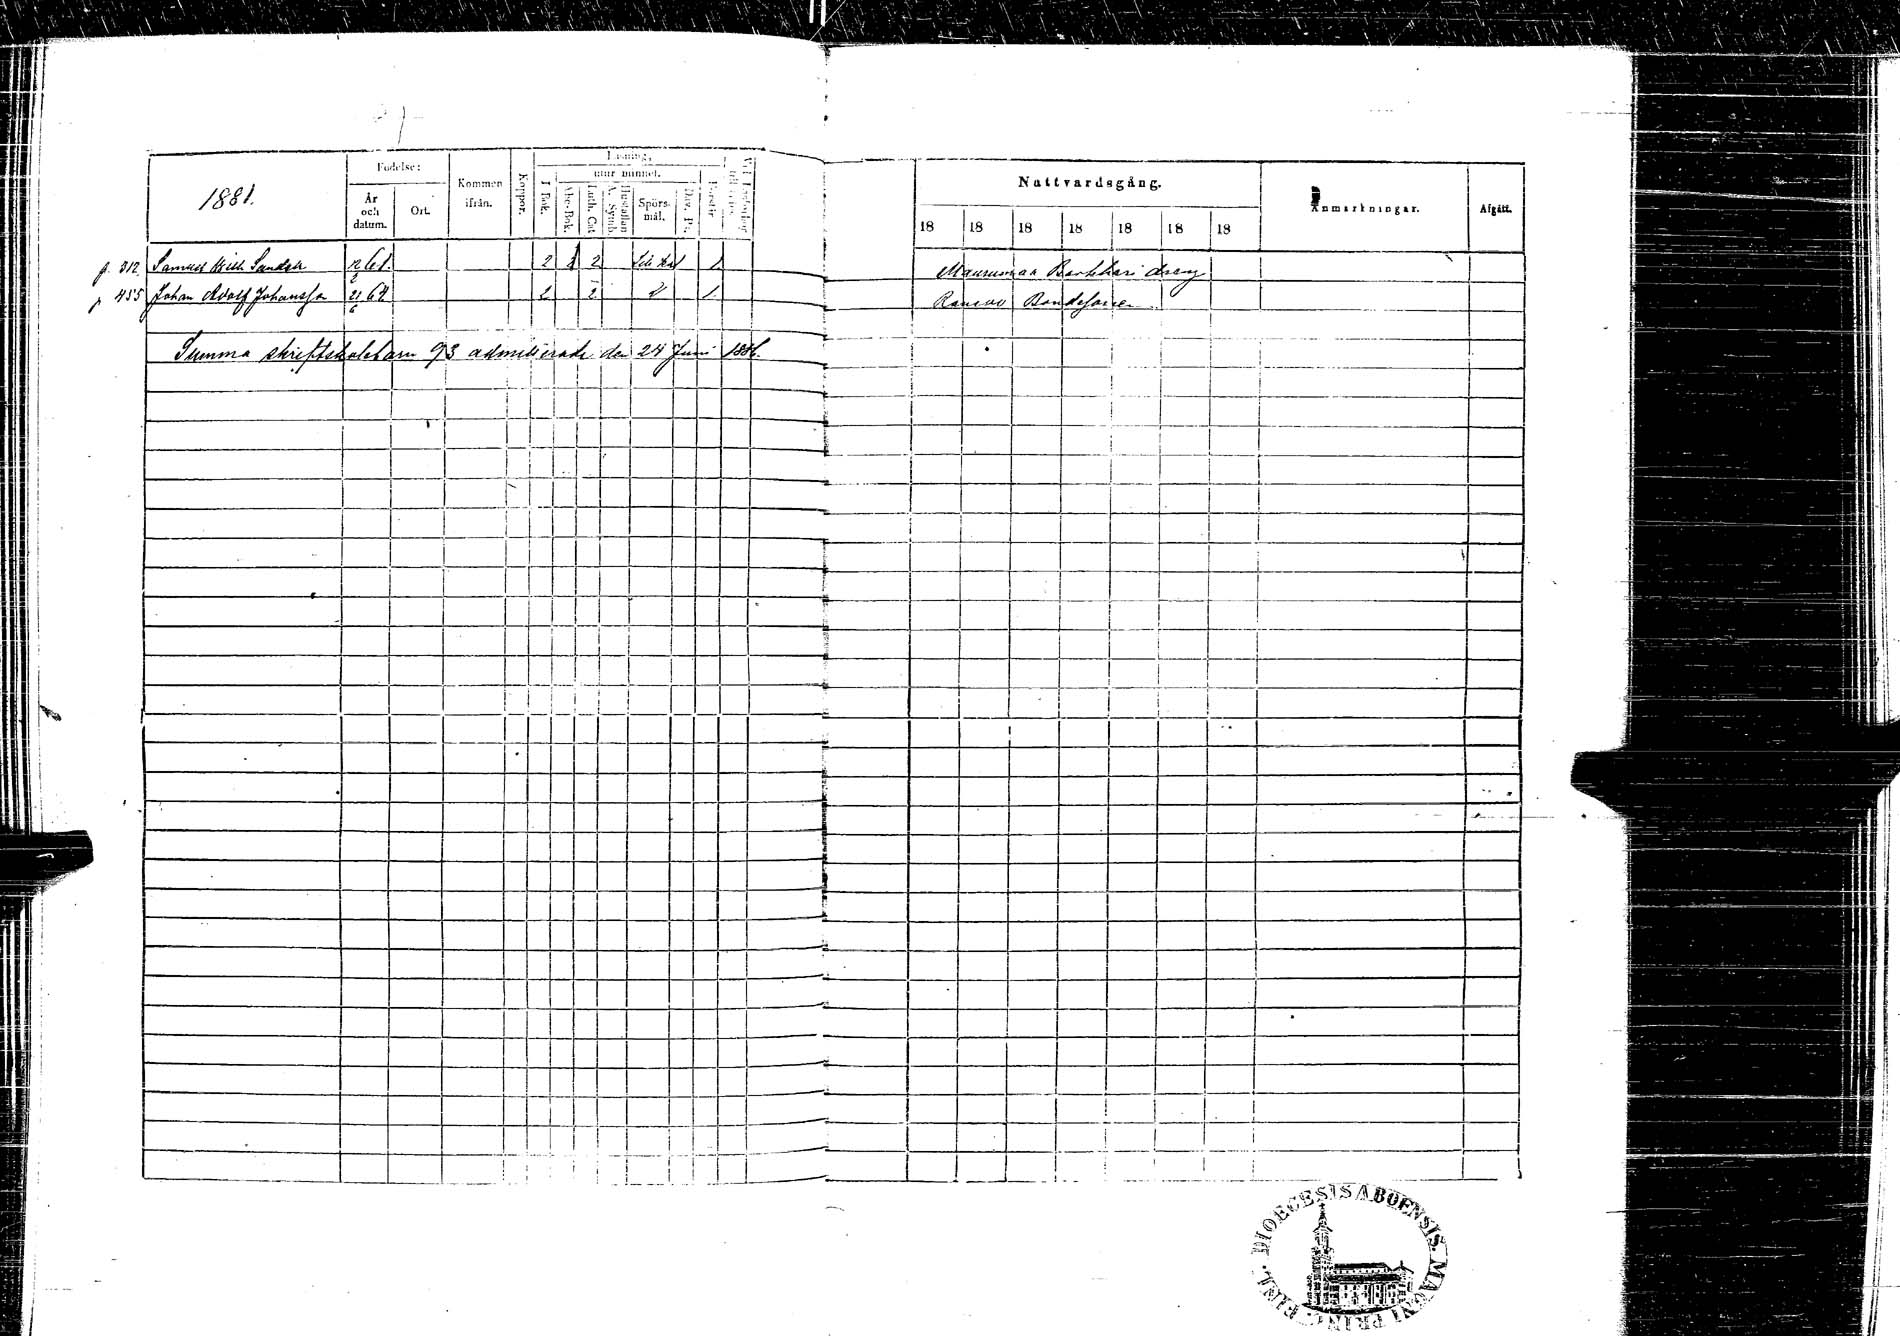 1881.
Födelse:
År och datum.
Ort.
Kommen ifrån.
Koppor.
Läsning,
utur minnet.
I Bok.
Abc-Bok.
Luth. Cat.
Hustaflan A. Symb.
Spörs-mål.
Dav. Ps.
Förstår
Nattvardsgång.
18 18 18 18 18 18 18
Anmärkningar.
Afgått.
p. 312. Samuel Wilh Sandell 12 61. 2 2 2 1. Maurumaa Barkkari dräng
p 455 Johan Adolf Johansson 21/6 64 2 2 2 1. Bondeson
Summa skriftskolebarn 93 admitterade den 24 Juni 1881.
DIOECESIS ABOENSIS. MAGNI PRINC. FINL.